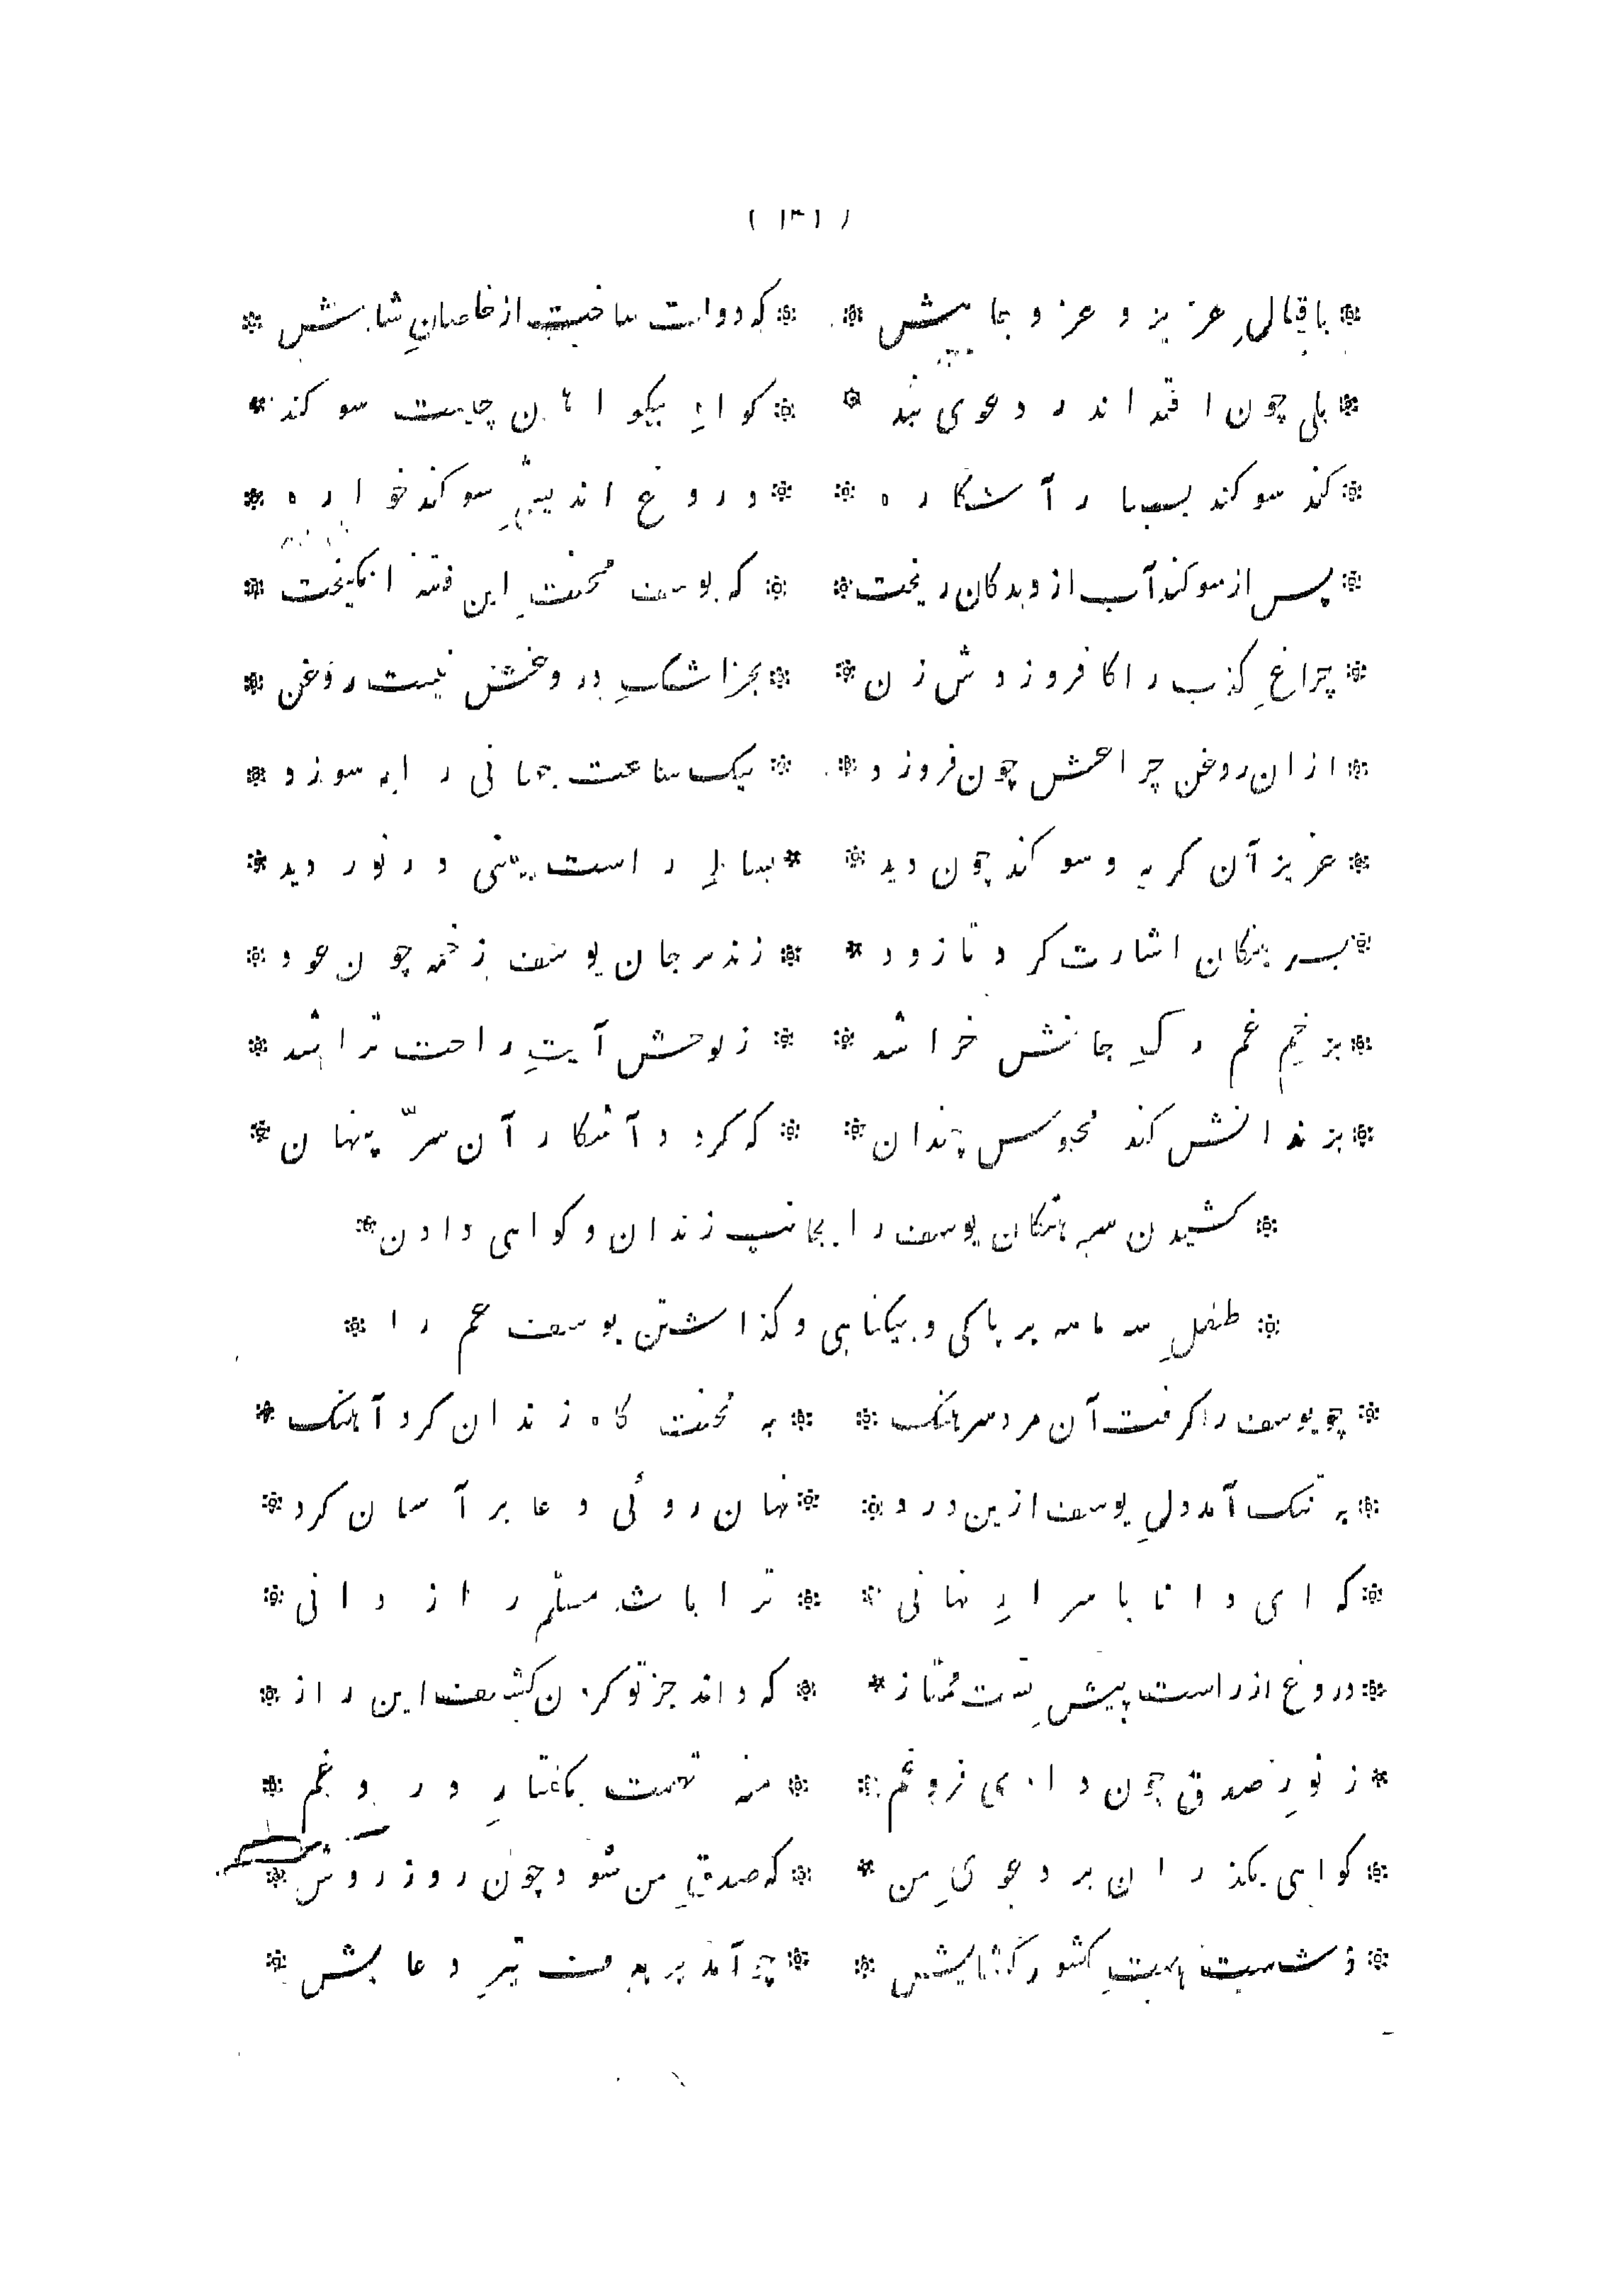 ( ۱۳۱ )
* باقبالِ عزیز و عز و جاهیش * که دولت ساخت از خاصانِ شاهیش *
* بلی چون افتد اندر دعوی بند * گواهِ بیگواهان چیست سوگند *
* کند سوگند بسیار آشکاره * دروغ اندیشِ سوگند خواره *
* پس از سوگند آب از دیدگان ریخت * که یوسف نخست این فتنه انگیخت *
* چراغِ کذب را کافروزدش زن * بجز اشکِ دروغش نیست روغن *
* ازان روغن چراغش چون فروزد * بیک ساعت جهانی را بسوزد *
* عزیز آن گریه و سوگند چون دید * بساطِ راست بینی در نوردید *
* بسرهنگان اشارت کرد تا زود * زند بر جان یوسف زخمه چون عود *
* بزخمِ غم رگِ جانش خراشد * ز لوحش آیتِ راحت تراشد *
* بزندانش کند محبوس چندان * که گردد آشکار آن سرّ پنهان *
* کشیدن سرهنگان یوسف را بجانب زندان و گواهی دادن *
* طفلِ سه ماهه بر پاکی و بیگناهی و گذاشتن یوسف عم را *
* چو یوسف را گرفت آن مرد سرهنگ * به محنت گاه زندان کرد آهنگ *
* به تنگ آمد دلِ یوسف ازین درد * نهان روئی دعا بر آسمان کرد *
* که ای دانا باسرارِ نهانی * ترا باشد مسلّم راز دانی *
* دروغ از راست پیشِ تست ممتاز * که داند جز تو کردن کشف این راز *
* ز نورِ صدق چون دادی فروغم * منه تهمت بگفتارِ دروغم *
* گواهی بگذران بر دعویِ من * که صدقِ من شود چون روز روشن *
* ز شستِ همتِ کشور گشایش * چو آمد بر هدف تیرِ دعایش *